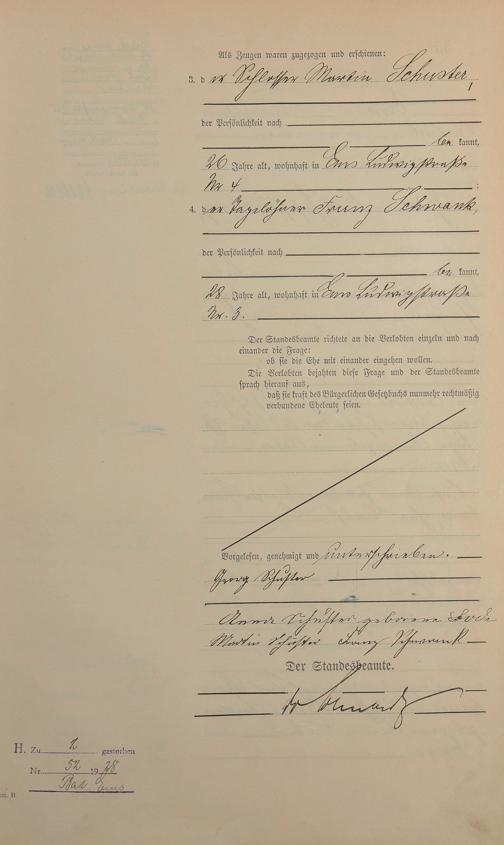 Als Zeugen waren zugezogen und erschienen:
3. der Schlosser Martin Schuster,
der Persönlichkeit nach
be kannt,
26 Jahre alt, wohnhaft in Ems Ludwigstraße
Nr. 4 ;
4. der Tagelöhner Franz Schwank,
der Persönlichkeit nach
be kannt,
28 Jahre alt, wohnhaft in Ems Ludwigstraße
Nr. 3.
Der Standesbeamte richtete an die Verlobten einzeln und nach
einander die Frage:
ob sie die Ehe mit einander eingehen wollen.
Die Verlobten bejahten diese Frage und der Standesbeamte
sprach hierauf aus,
daß sie kraft des Bürgerlichen Gesetzbuchs nunmehr rechtmäßig
verbundene Eheleute seien.
Vorgelesen, genehmigt und unterschrieben.
Georg Schuster
Anna Schuster geborene
Martin Schuster Franz Schwank
Der Standesbeamte.
H. Zu 2 gestorben
Nr. 52 1938
Bad Ems